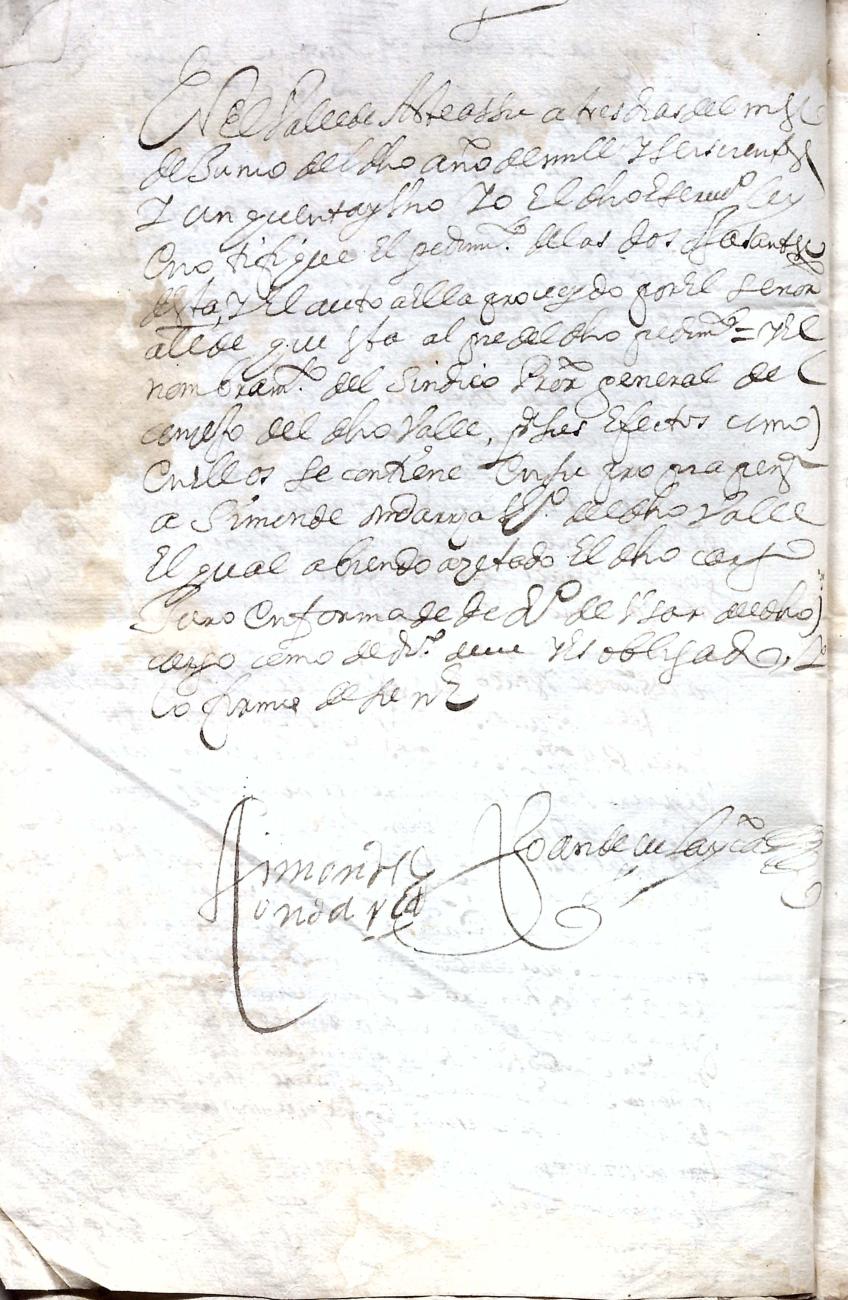 En el Valle de Arteassu a tres dias del mes
de Junio del dho año de mill y seiscientos
y cinquenta y Uno Yo El dho Escriuo ley
y notifique El pedimto de las dos ojas antes
desta, y El auto a ella proueydo por El Señor
alcde que esta al pie del dho pedimto = y El
nombramto del Sindico Pror general del
concejo del dho Valle, pa los Efectos como
en ellos se contiene En su propria persa
a Simon de vno del dho Valle
El qual abiendo açetado El dho cargo
Juro En forma de de dro de Usar del dho
cargo como de dro deue y es obligado, y
lo firme de que
Simon de
Joan de